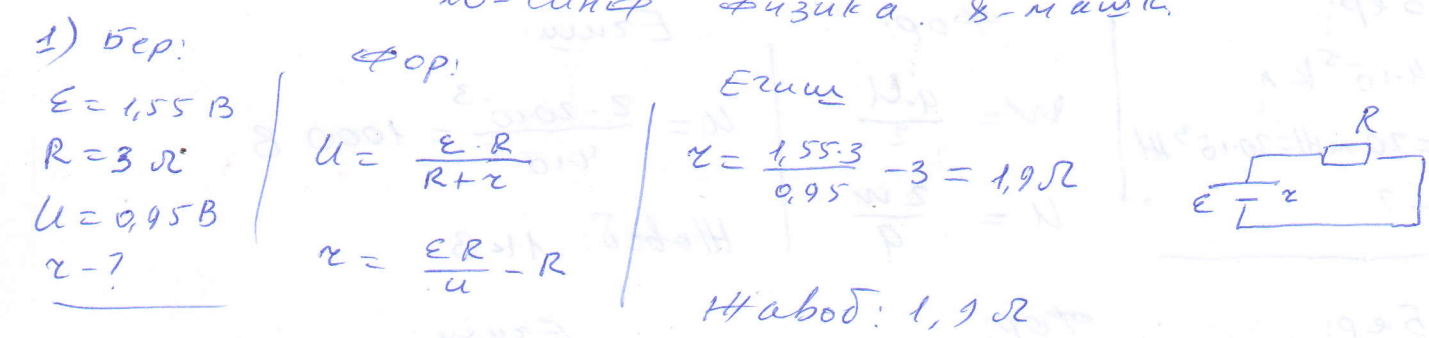 физика. 8-машк.
1) Бер:
ε = 1,55 В
R = 3 Ω
U = 0,95 В
r - ?
Фор:
U = ε·R / R+r
r = εR / U - R
Ечиш
r = 1,55·3 / 0,95 - 3 = 1,9 Ω
Жавоб: 1,9 Ω
R
ε r